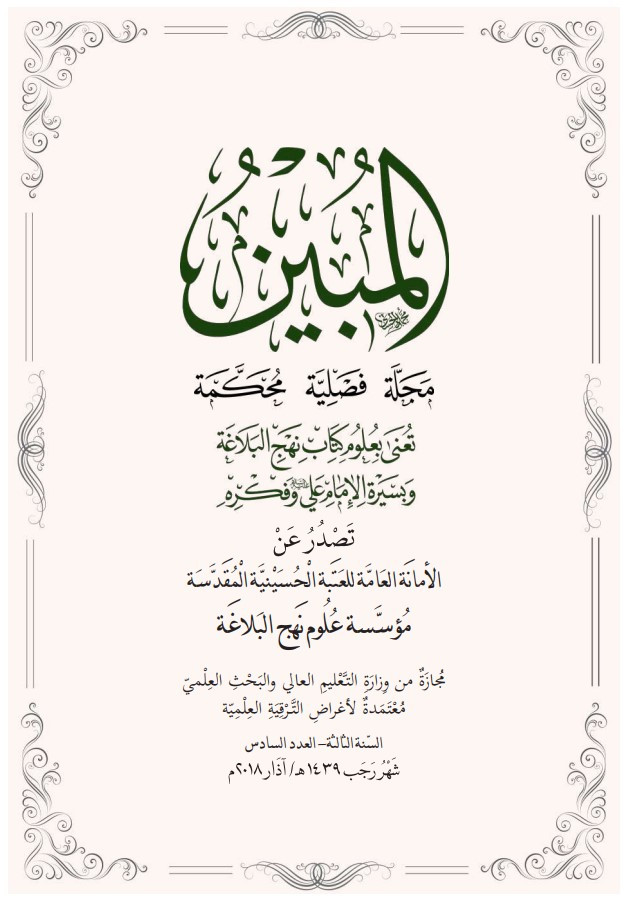 المُبِين
مَجَلَّة فَصْلِيَّة مُحَكَّمَة
تُعْنَى بِعُلُومِ كِتَابِ نَهْجِ البَلَاغَة
وَبِسِيْرَةِ الإِمَامِ عَلِي وَفِكْرِهِ
تَصْدُرُ عَنْ
الأمانَة العَامَّة للعَتَبة الْحُسَيْنِيَّة الْمُقَدَّسَة
مُؤسَّسة عُلُوم نَهج البَلاغَة
مُجازَةٌ من وِزارَةِ التَّعْليمِ العالي والبَحْثِ العِلْميّ
مُعْتَمَدةٌ لأغراضِ التَّرْقِيَةِ العِلْمِيّة
السّنة الثالثة – العدد السادس
شَهْرُ رَجَب ١٤٣٩هـ/ آذَار ٢٠١٨م